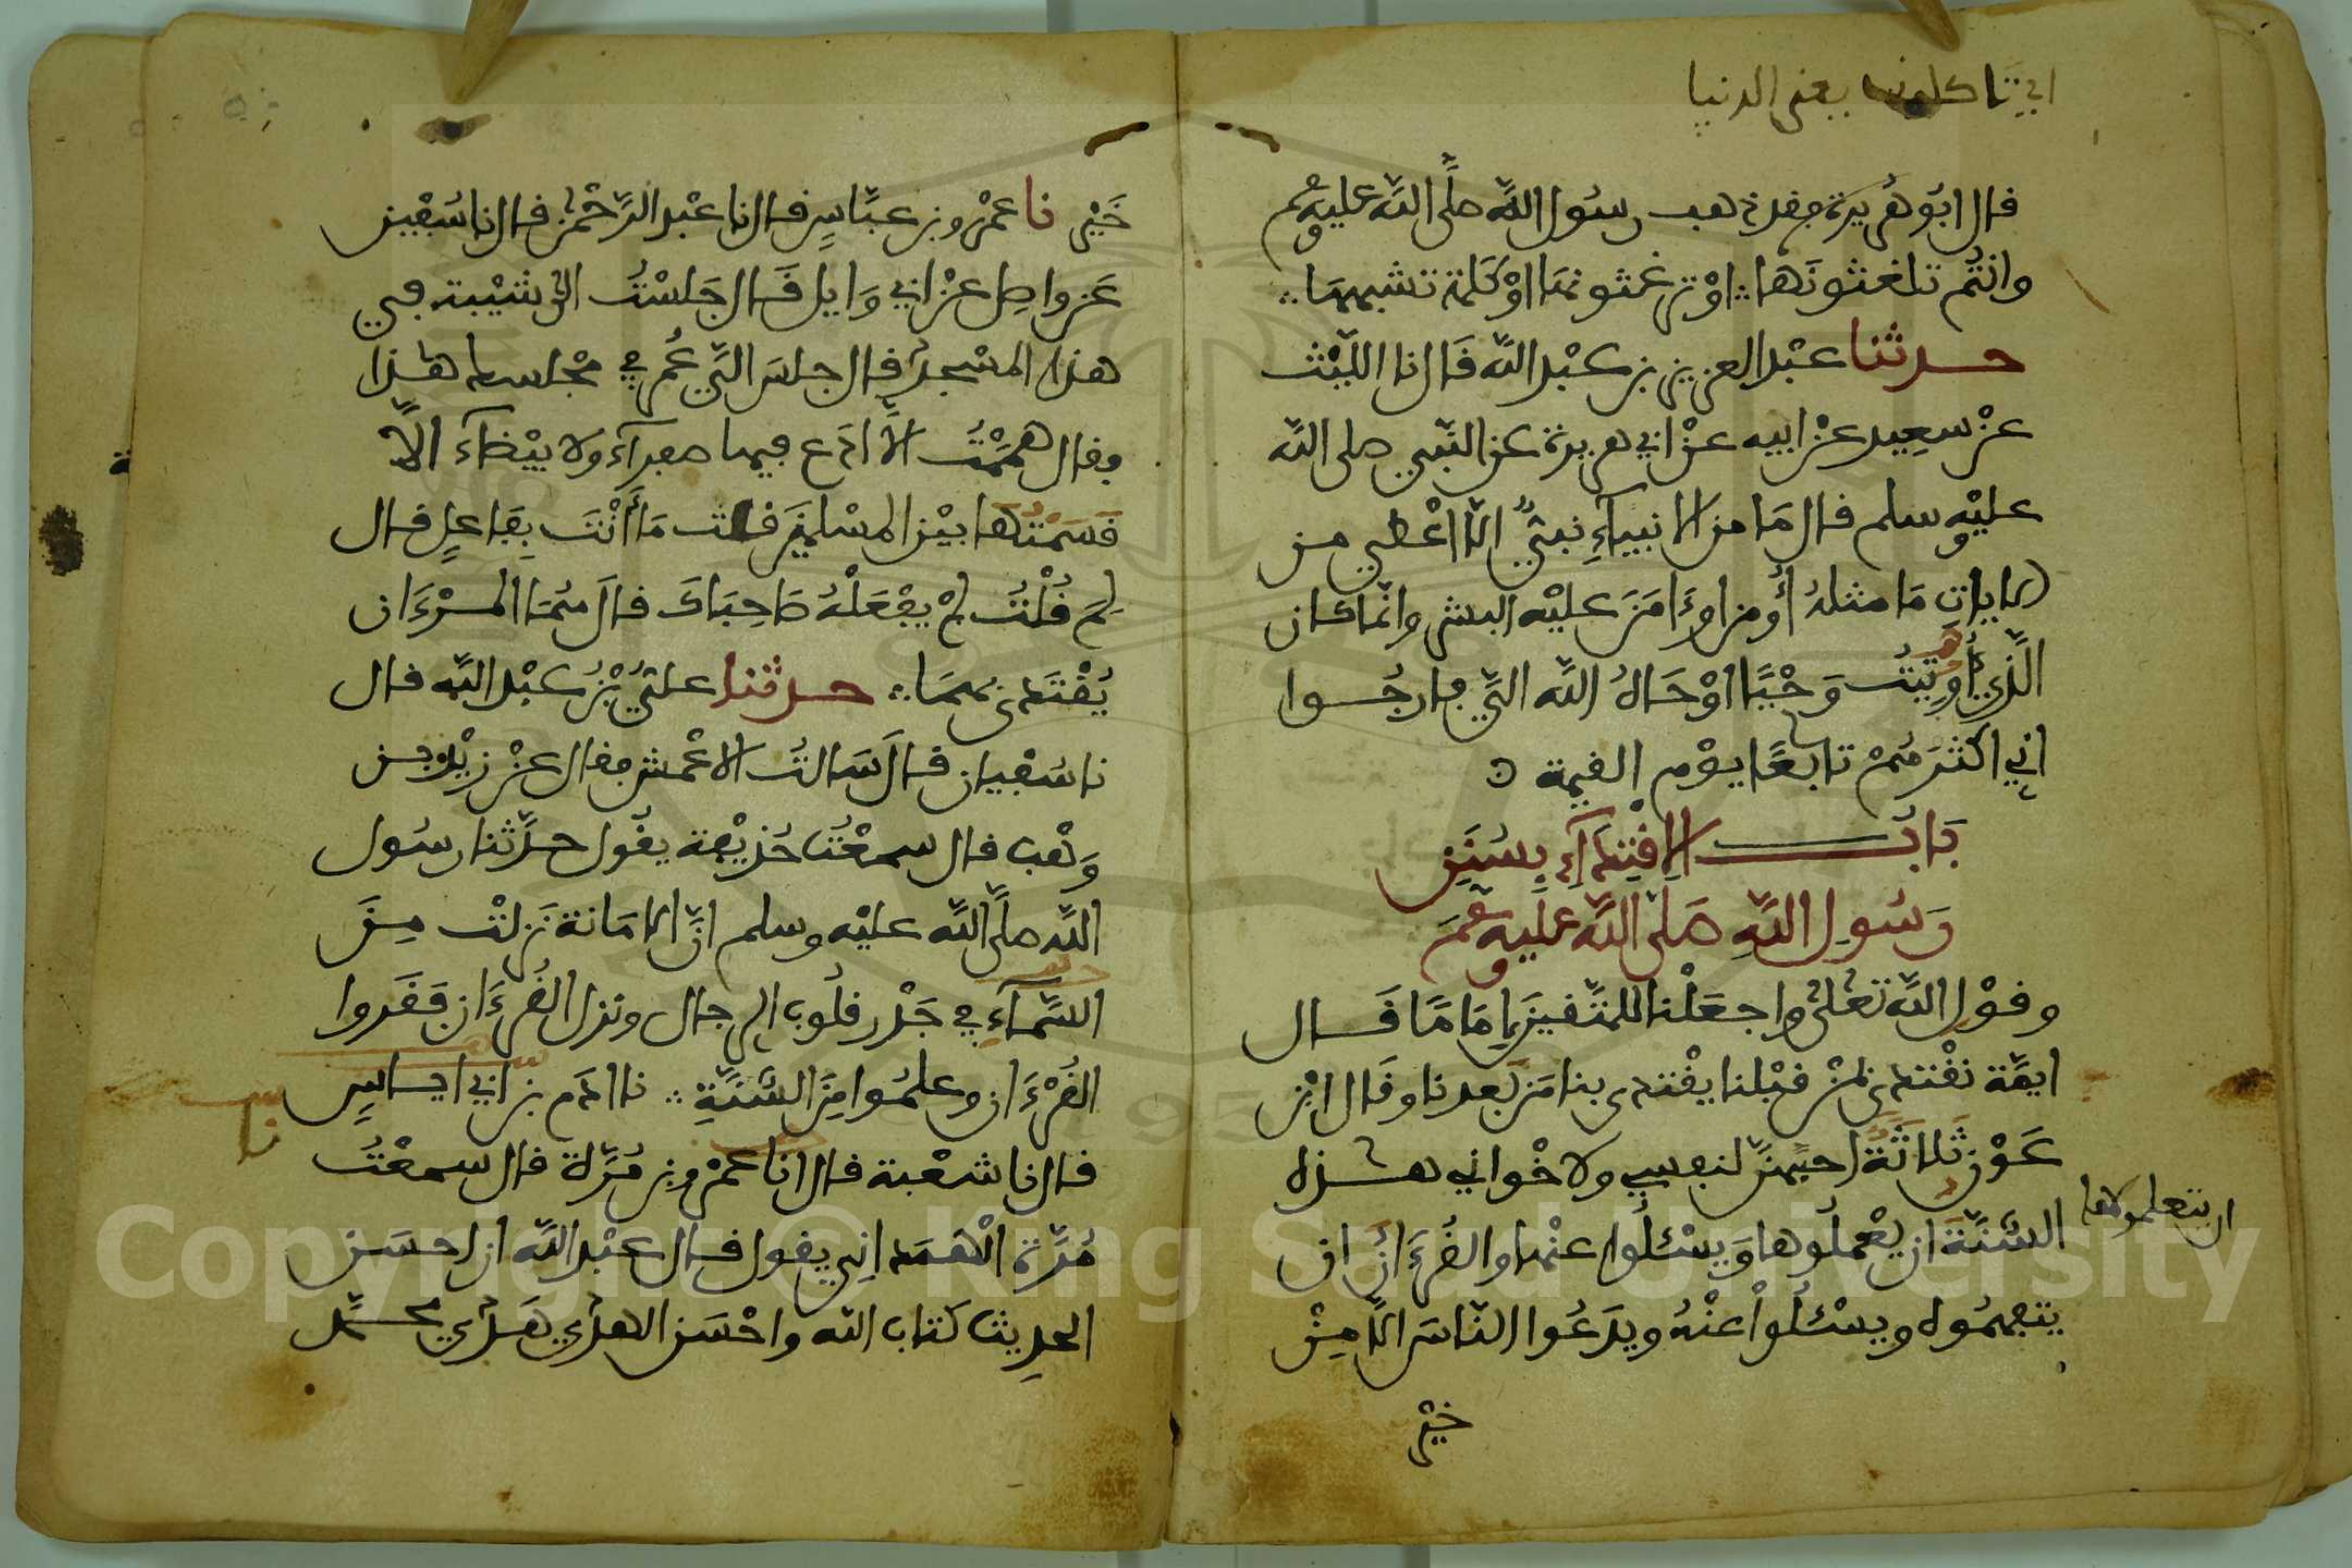 اي تاكلونها يعني الدنيا
قال ابُو هُريرة فقد ذهب رسُول اللّٰه صلّى اللّٰه عليه وسلم
وانتُم تلغثونَها ∴ اوْ ترغثونها اوْ كلمة تشبهها ∴
حدثنا عبْد العزيز بن عبْد اللّٰه قَال نا الليْث
عنْ سعِيد عنْ ابيه عنْ ابي هريرة عن النّبي صلى اللّٰه
عليْه وسلم قال مَا من الانبيآءِ نبيٌّ الّا اعْطي من
الايات مَا مثلهُ أُومن اوءَامَنَ عليْه البشر وانّما كان
الَّذي أُوتيتُ وَحْيًا اوْحَاهُ اللّٰه اليّ فارجُوا
اني اكثرَهُمْ تابعًا يوْم القيمة ه
بَابُ الاِقْتِدَآءِ بِسُنَنِ
رَسُولِ اللّٰهِ صَلى اللّٰه عَليه وسلم
وقوْل اللّٰه تعلى واجعَلْنا للمتَّقينَ إِمَامًا قَال
ايمَّة نقْتدي بمنْ قبْلنا يقْتدي بنا مَن بَعدنا وقَال ابْن
عَوْن ثَلاثَةٌ احبهنّ لنفسي ولاخْواني هذه
السّنَّة ان يعْملُوها وَيسْئلُوا عنْها والقُرءَانُ ان
ان يتعلموها
يتفهمُوه ويسْئلُواْ عنْهُ ويدَعُوا النّاسَ الّا مِنْ
خيْر
خَيْر نا عمْرو بن عبَّاسٍ قال نا عبْد الرَّحْمٰن قال نا سُفْين
عَن واصِل عنْ ابي وَايل قَال جَلسْتُ الى شيْبة في
هذا المسْجد قال جلسَ اليّ عُمر في مجْلسك هذا
فقال هممْتُ الَّا ادَع فيها صفرآءَ ولا بيْضآءَ الّا
قَسَمْتُها بيْن المسْلمينَ قلت مَا أَنْتَ بِفَاعلٍ قال
لِمَ قُلْتُ لمْ يفْعَلْهُ صَاحِبَاكَ قالَ هُمَا المرْءَان
يُقْتَدى بهمَا ∴ حدثنا عليُّ بْنُ عبْد اللّٰه قال
نا سُفْيان قالَ سَالتُ الاعْمش فقال عنْ زيْد بن
وَهْب قال سمعْتُ حُذيْفة يقُول حدَّثنا رسُول
اللّٰه صلَّى اللّٰه عليْه وسلم انَّ الامَانة نَزلتْ مِنَ
السّمآءِ في جَذْر قلُوب الرجال ونزل القُرءَان فَقَرءوا
القُرْءَان وعلمُوا مِنَ السُّنَّةِ ∴ نا ادَم بن ابي اياسٍ
نا
قال نا شعْبة قال انا عمْرو بن مُرَّة قال سمعْتُ
مُرَّة الْهَمْدانِي يقول قال عبْد اللّٰه ان احسَن
الحدِيث كتاب اللّٰه واحْسَن الهدْي هَدْي محمّد